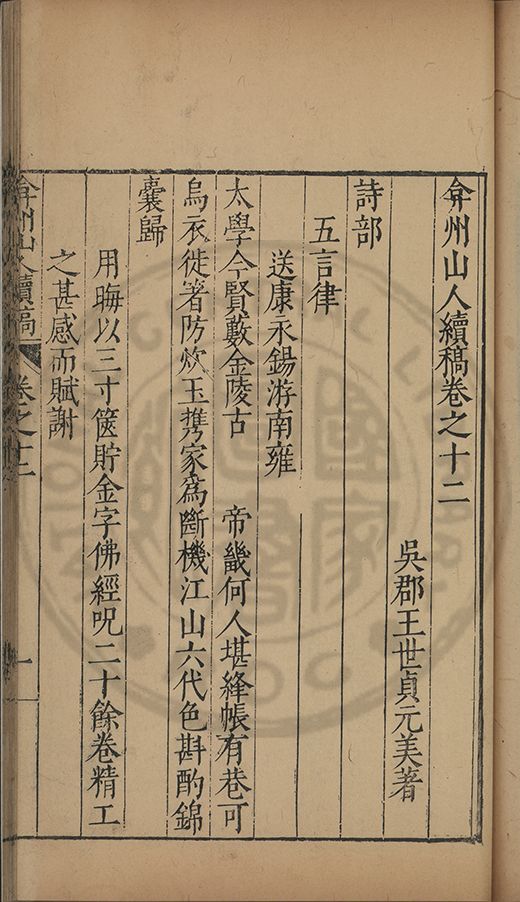 弇州山人續稿卷之十二
吳郡王世貞元美著
詩部
五言律
送康永錫游南雍
太學今賢藪金陵古　帝畿何人堪絳帳有巷可
烏衣徙著防炊玉携家爲斷機江山六代色斟酌錦
囊歸
用晦以三寸篋貯金字佛經呪二十餘卷精工
之甚感而賦謝
弇州山人續稿 卷之十二 一